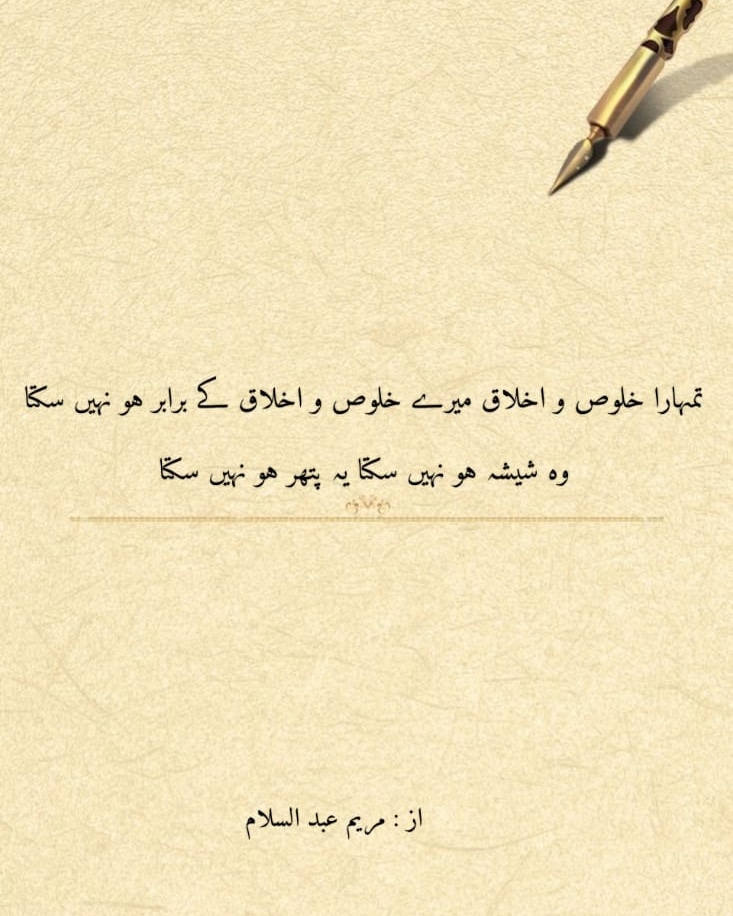 تمہارا خلوص و اخلاق میرے خلوص و اخلاق کے برابر ہو نہیں سکتا
وہ شیشہ ہو نہیں سکتا یہ پتھر ہو نہیں سکتا
از : مریم عبد السلام